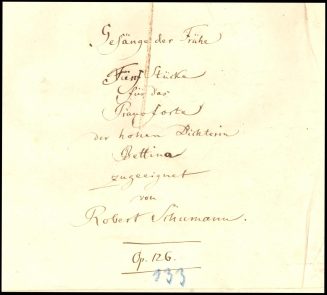 Gesänge der Frühe
Fünf Stücke
für das
Pianoforte
der hohen Dichterin
Bettina
zugeeignet
von
Robert Schumann.
Op. 126.
133